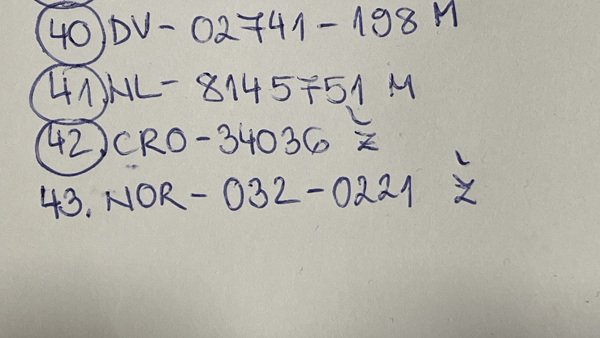 40 DV- 02741-198 M
41. NL- 8145751 M
42. CRO-34036 Ž
43. NOR-032-0221 Ž